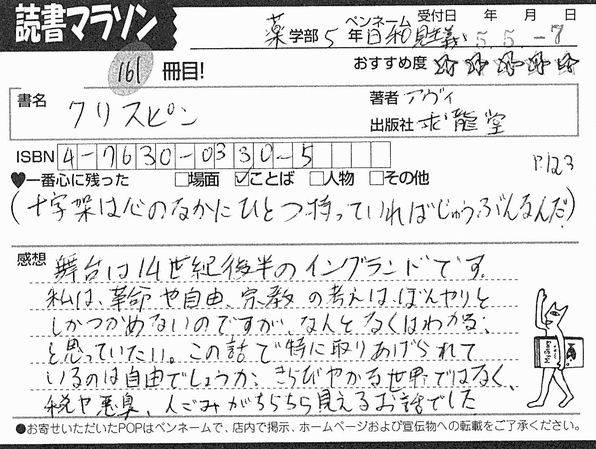 読書マラソン
受付日 年 月 日
ペンネーム
薬学部5年 日和見主義 5.5.-7
161冊目!
おすすめ度 ☆☆☆☆☆
書名 クリスピン
著者 アヴィ
出版社 求龍堂
ISBN 4-7630-0330-5
P.123
♥一番心に残った □場面 ☑ことば □人物 □その他
(十字架は心のなかにひとつ持っていればじゅうぶんなんだ)
感想 舞台は14世紀後半のイングランドです。
私は、革命や自由、宗教の考えは、ぼんやりと
しかつかめないのですが、なんとなくはわかる、
と思っていたい。この話で特に取りあげられて
いるのは自由でしょうか。きらびやかな世界ではなく、
税や悪臭、人ごみがちらちら見えるお話でした
●お寄せいただいたPOPはペンネームで、店内で掲示、ホームページおよび宣伝物への転載をご了承ください。